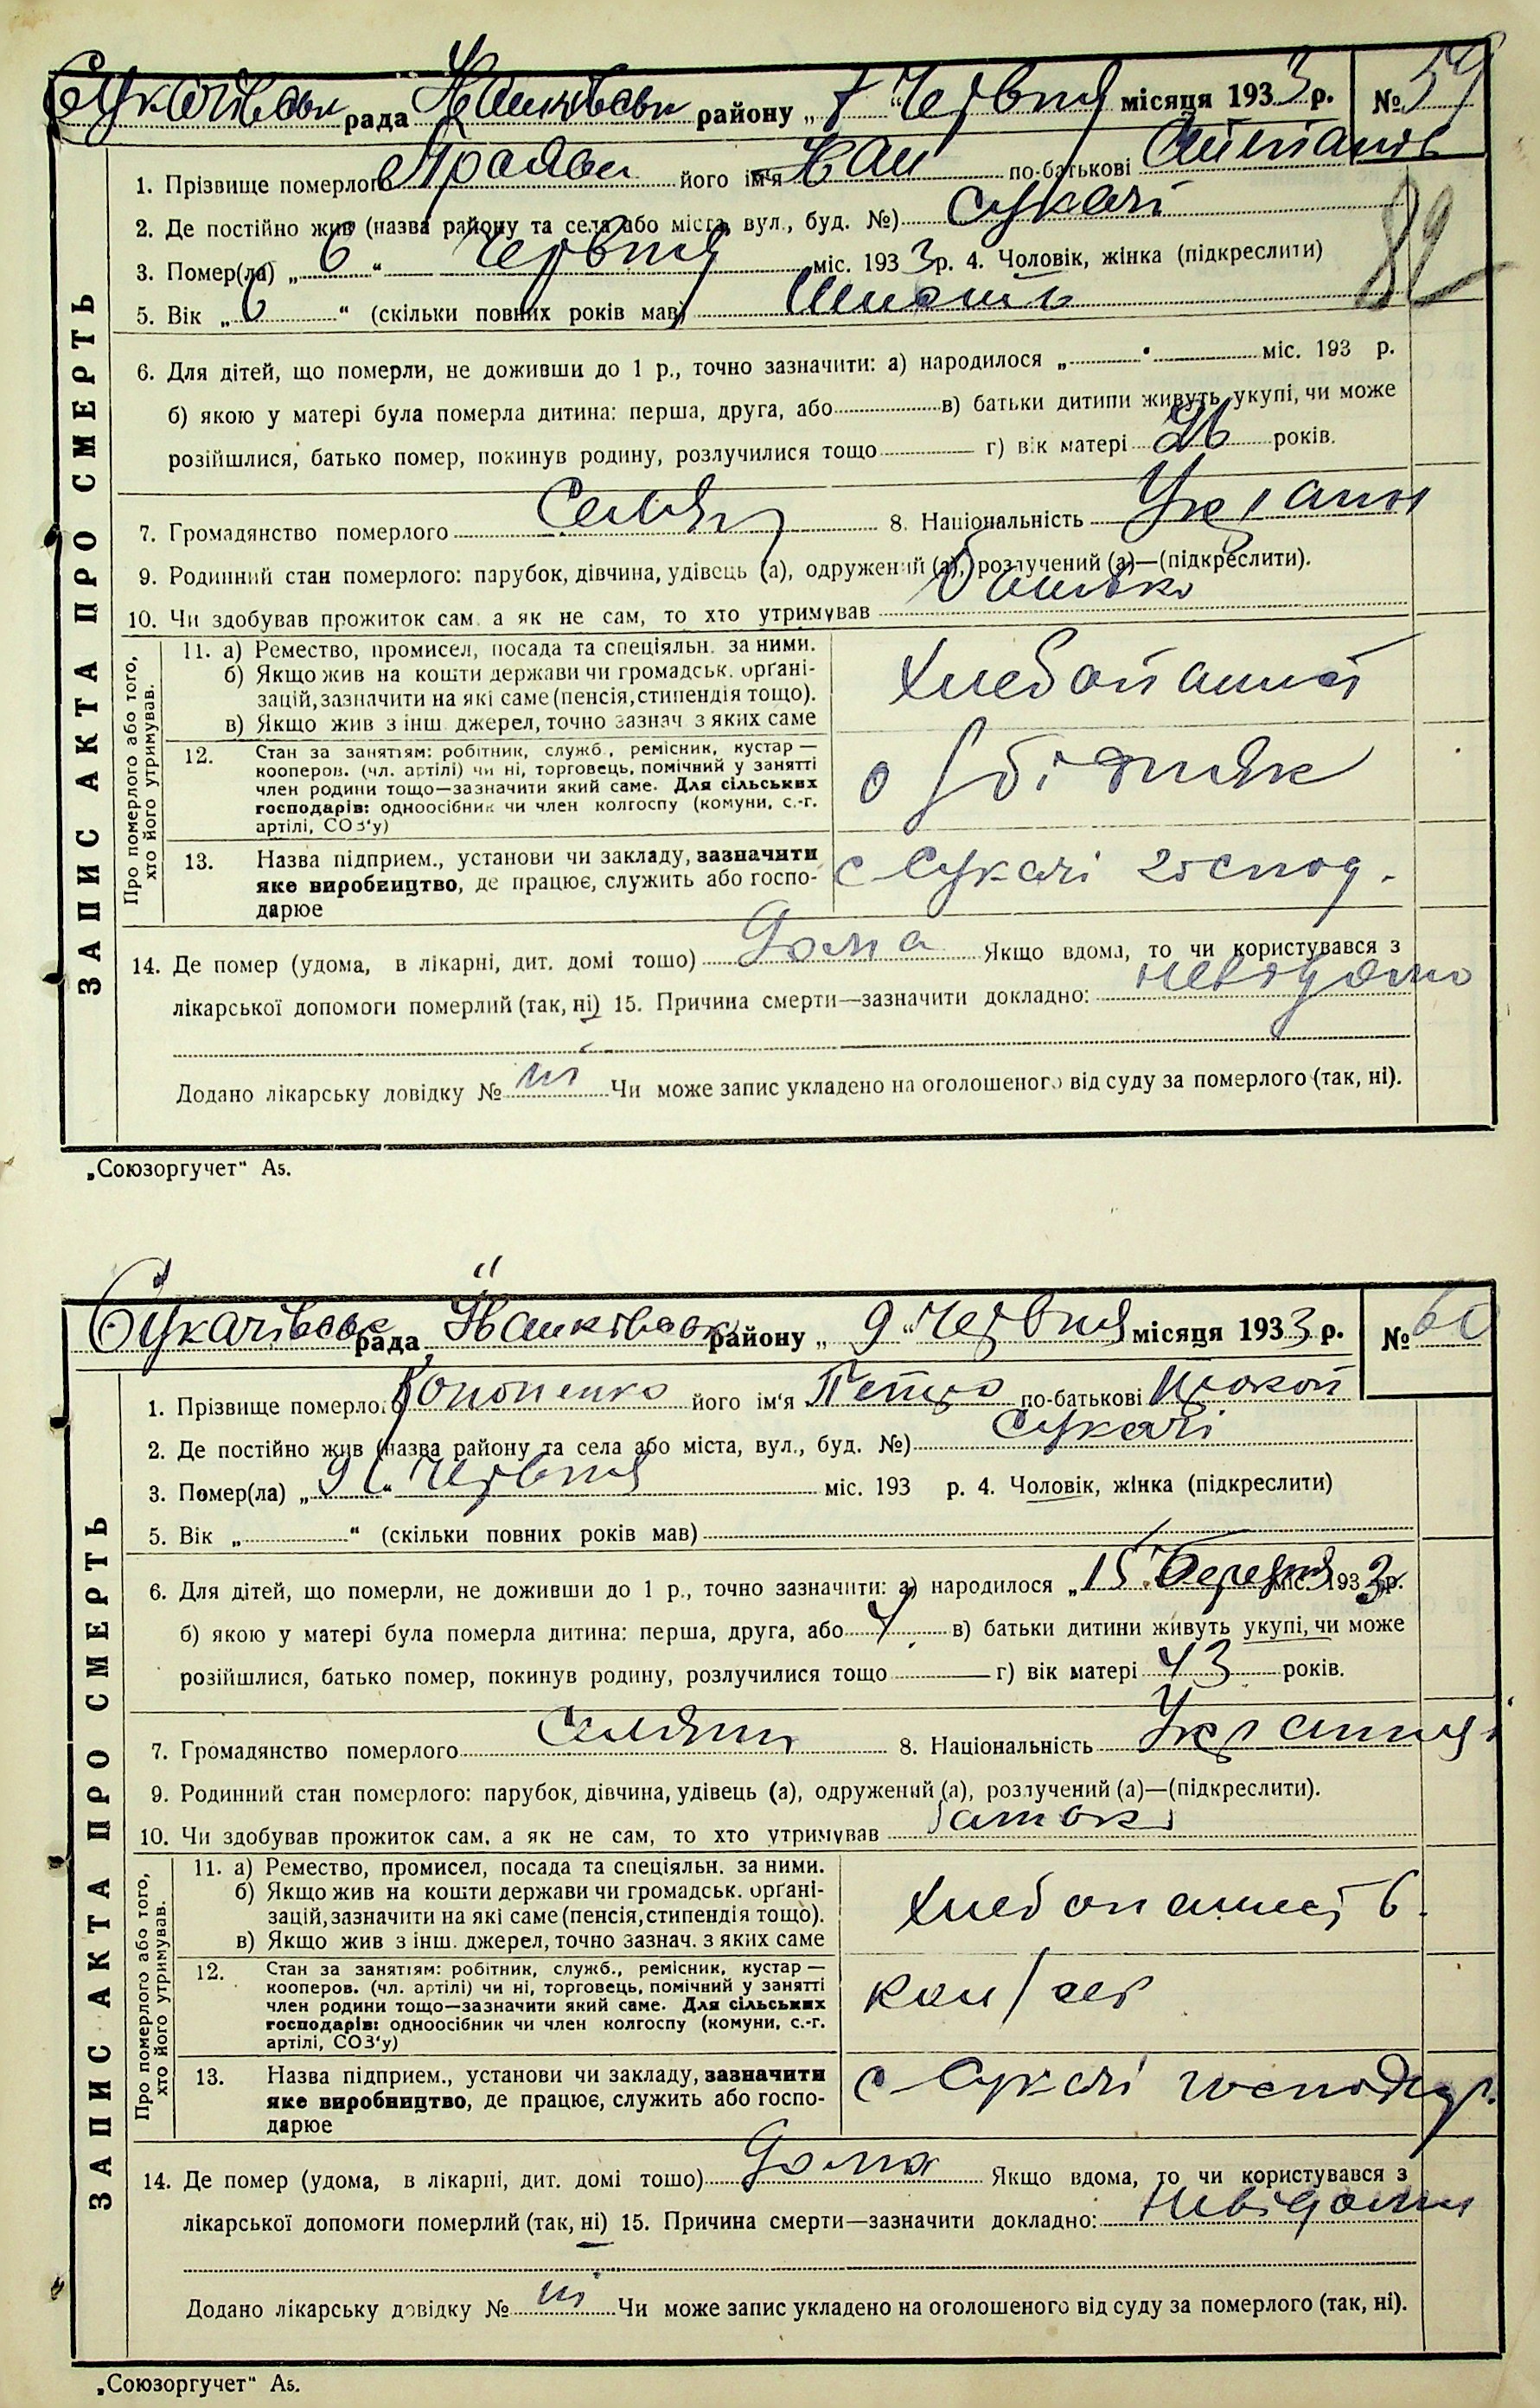 Сукачівськ рада Іванківськ району „ 7 “ Червня місяця 1933 р. № 59
1. Прізвище померлого його ім'я Іван по-батькові
2. Де постійно жив (назва району та села або міста, вул., буд. №) Сукачі
82
3. Помер(ла) „ 6 “ Червня міс. 1933 р. 4. Чоловік, жінка (підкреслити)
5. Вік „ 6 “ (скільки повних років мав) Шість
6. Для дітей, що померли, не доживши до 1 р., точно зазначити: а) народилося „ міс. 193 р.
б) якою у матері була померла дитина: перша, друга, або в) батьки дитини живуть укупі, чи може
розійшлися, батько помер, покинув родину, розлучилися тощо г) вік матері 26 років.
7. Громадянство померлого Селян 8. Національність Україн
9. Родинний стан померлого: парубок, дівчина, удівець (а), одружений (а), розлучений (а)—(підкреслити).
10. Чи здобував прожиток сам, а як не сам, то хто утримував батько
ЗАПИС АКТА ПРО СМЕРТЬ
Про померлого або того, хто його утримував.
11. а) Ремество, промисел, посада та спеціяльн. за ними.
б) Якщо жив на кошти держави чи громадськ. орґані-
зацій, зазначити на які саме (пенсія, стипендія тощо).
в) Якщо жив з інш. джерел, точно зазнач. з яких саме
Хлебопашест
12. Стан за заняттям: робітник, служб., ремісник, кустар —
кооперов. (чл. артілі) чи ні, торговець, помічний у занятті
член родини тощо—зазначити який саме. Для сільських
господарів: одноосібник чи член колгоспу (комуни, с.-г.
артілі, СОЗ'у)
о/бідняк
13. Назва підприєм., установи чи закладу, зазначити
яке виробництво, де працює, служить або госпо-
дарює
с Сукачі господ.
14. Де помер (удома, в лікарні, дит. домі тощо) Дома Якщо вдома, то чи користувався з
лікарської допомоги померлий (так, ні) 15. Причина смерти—зазначити докладно: невідомо
Додано лікарську довідку № ні Чи може запис укладено на оголошеного від суду за померлого (так, ні).
„Союзоргучет“ А5.
Сукачівськ рада Іванківськ району „ 9 “ Червня місяця 1933 р. № 60
1. Прізвище померлого Кононенко його ім'я Петро по-батькові Прокоп
2. Де постійно жив (назва району та села або міста, вул., буд. №) Сукачі
3. Помер(ла) „ 9 “ Червня міс. 193 р. 4. Чоловік, жінка (підкреслити)
5. Вік „ “ (скільки повних років мав)
6. Для дітей, що померли, не доживши до 1 р., точно зазначити: а) народилося „ 15 “ Березня міс. 1933 р.
б) якою у матері була померла дитина: перша, друга, або 4 в) батьки дитини живуть укупі, чи може
розійшлися, батько помер, покинув родину, розлучилися тощо г) вік матері 43 років.
7. Громадянство померлого Селянин 8. Національність
9. Родинний стан померлого: парубок, дівчина, удівець (а), одружений (а), розлучений (а)—(підкреслити).
10. Чи здобував прожиток сам, а як не сам, то хто утримував батько
ЗАПИС АКТА ПРО СМЕРТЬ
Про померлого або того, хто його утримував.
11. а) Ремество, промисел, посада та спеціяльн. за ними.
б) Якщо жив на кошти держави чи громадськ. орґані-
зацій, зазначити на які саме (пенсія, стипендія тощо).
в) Якщо жив з інш. джерел, точно зазнач. з яких саме
Хлебопашеств.
12. Стан за заняттям: робітник, служб., ремісник, кустар —
кооперов. (чл. артілі) чи ні, торговець, помічний у занятті
член родини тощо—зазначити який саме. Для сільських
господарів: одноосібник чи член колгоспу (комуни, с.-г.
артілі, СОЗ'у)
13. Назва підприєм., установи чи закладу, зазначити
яке виробництво, де працює, служить або госпо-
дарює
с Сукачі господар.
14. Де помер (удома, в лікарні, дит. домі тощо) Дома Якщо вдома, то чи користувався з
лікарської допомоги померлий (так, ні) 15. Причина смерти—зазначити докладно: Невідома
Додано лікарську довідку № ні Чи може запис укладено на оголошеного від суду за померлого (так, ні).
„Союзоргучет“ А5.